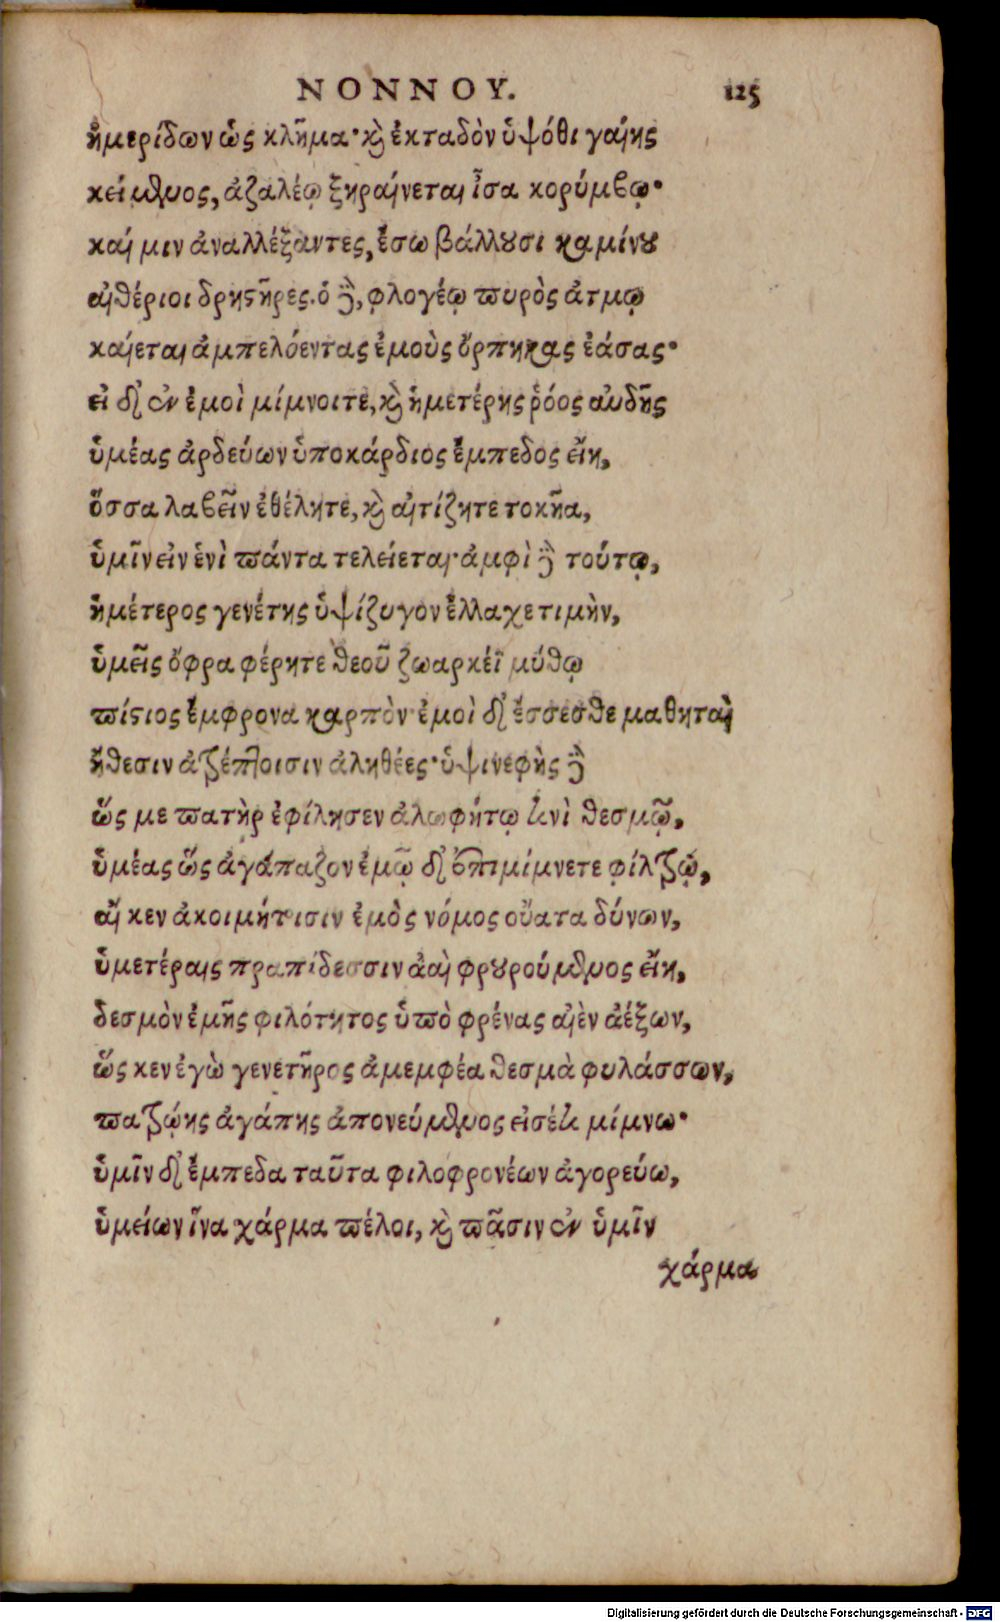 ΝΟΝΝΟΥ. 125
ἡμερίδων ὡς κλῆμα· καὶ ἐκταδὸν ὑψόθι γαίης
κείμενος, ἀζαλέῳ ξηραίνεται ἶσα κορύμβῳ·
καί μιν ἀναλλέξαντες, ἔσω βάλλουσι καμίνου
αἰθέριοι δρηστῆρες. ὁ δὲ, φλογέῳ πυρὸς ἀτμῷ
καίεται ἀμπελόεντας ἐμοὺς ὄρπηκας ἐάσας·
εἰ δ' ἐν ἐμοὶ μίμνοιτε, καὶ ἡμετέρης ῥόος αὐδῆς
ὑμέας ἀρδεύων ὑποκάρδιος ἔμπεδος εἴη,
ὅσσα λαβεῖν ἐθέλητε, καὶ αἰτίζητε τοκῆα,
ὑμῖν εἰν ἑνὶ πάντα τελείεται· ἀμφὶ δὲ τούτῳ,
ἡμέτερος γενέτης ὑψίζυγον ἔλλαχε τιμὴν,
ὑμεῖς ὄφρα φέρητε θεοῦ ζωαρκέϊ μύθῳ
πίστιος ἔμφρονα καρπὸν· ἐμοὶ δ' ἔσσεσθε μαθηταὶ
ἤθεσιν ἀτρέπτοισιν ἀληθέες· ὑψινεφὴς δὲ
ὥς με πατὴρ ἐφίλησεν ἀλωφήτῳ ἑνὶ θεσμῷ,
ὑμέας ὣς ἀγάπαζον ἐμῷ δ' ἐπιμίμνετε φίλτρῳ,
αἴ κεν ἀκοιμήτισιν ἐμὸς νόμος οὔατα δύνων,
ὑμετέραις πραπίδεσσιν ἀαὶ φρουρούμενος εἴη,
δεσμὸν ἐμῆς φιλότητος ὑπὸ φρένας αἰὲν ἀέξων,
ὥς κεν ἐγὼ γενετῆρος ἀμεμφέα θεσμὰ φυλάσσων,
πατρῴης ἀγάπης ἀπονεύμενος εἰσέτι μίμνω·
ὑμῖν δ' ἔμπεδα ταῦτα φιλοφρονέων ἀγορεύω,
ὑμείων ἵνα χάρμα πέλοι, καὶ πᾶσιν ἐν ὑμῖν
χάρμα
Digitalisierung gefördert durch die Deutsche Forschungsgemeinschaft - DFG